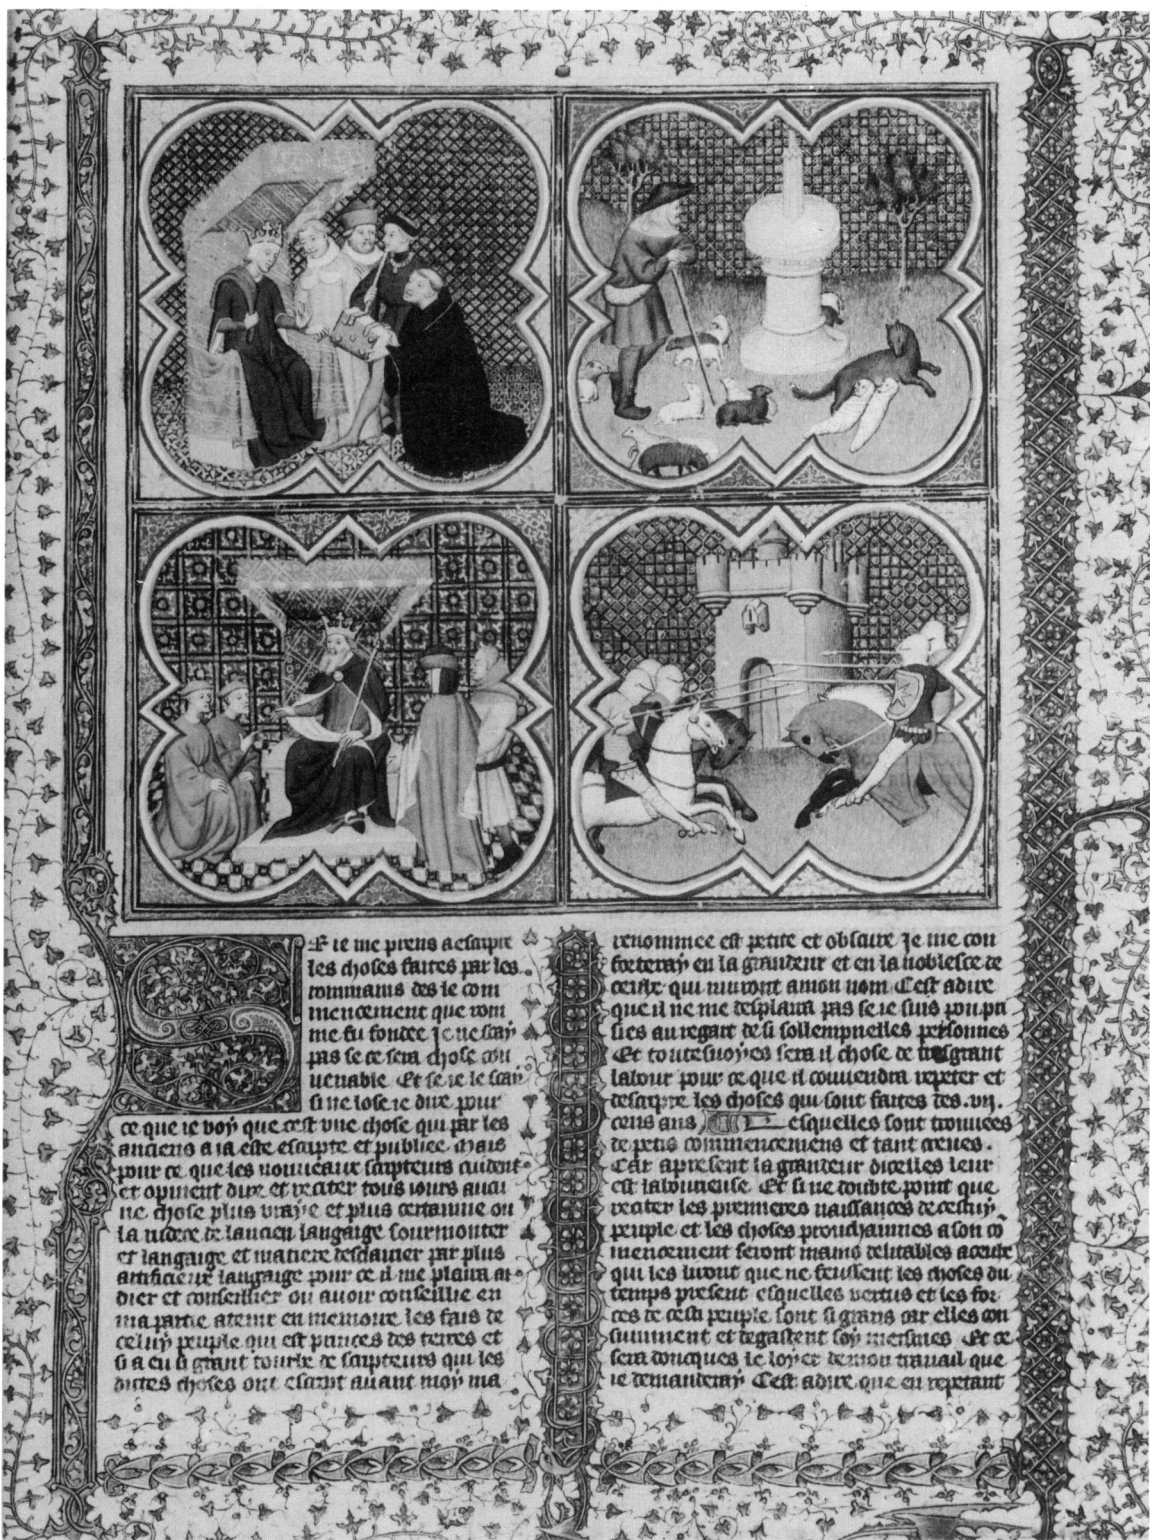 SE ie me prens a escripre
les choses faites par les
rommains des le com
mencement que rom
me fu fondee Je ne scay
pas se ce sera chose con
uenable Et se ie le scay
si ne lose ie dire pour
ce que ie voy que cest vne chose qui par les
anciens a ia este escripte et publiee Mais
pour ce que les nouueaux scripteurs cuident
et opinent dire et reciter tous iours aucu
ne chose plus vraye et plus certainne ou
la rudece de lancien langaige sourmonter
et langaige et matiere desclairier par plus
artificieux langaige pour ce il me plaira ai
dier et conseillier ou auoir conseillie en
ma partie a tenir en memoire les fais de
celuy peuple qui est princes des terres et
si a eu si grant tourbe de scripteurs qui les
dictes choses ont escript auant moy ma
renommee est petite et obscure Je me con
forteray en la grandeur et en la noblesce de
ceulx qui nuiront a mon nom Cest adire
que il ne me desplaira pas se ie suis pou pri
sies au regart de si sollempnelles personnes
Et toutesuoyes sera il chose de tresgrant
labour pour ce que il conuendra repeter et
descripre les choses qui sont faites des .vii.
cens ans Lesquelles sont trouuees
de petis commencemens et tant creues.
Car apresent la grandeur dicelles leur
est labourieuse Et si ne doubte point que
reciter les premieres naissances de cestuy
peuple et les choses prouchainnes a son co
mencement seront mains delitables a ceulx
qui les liront que ne feussent les choses du
temps present esquelles vertus et les for
ces de cesti peuple sont si grans car elles con
summent et degastent soy mesmes Et ce
sera doncques le loyer de mon trauail que
ie demanderay Cest adire que en repetant